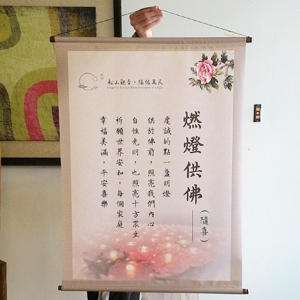 松山觀音·福佑萬民
燃燈供佛(隨喜)
虔誠的點一盞明燈
供於佛前,照亮我們內心
自性光明,也照亮十方眾生
祈願世界安和,每個家庭
幸福美滿,平安喜樂